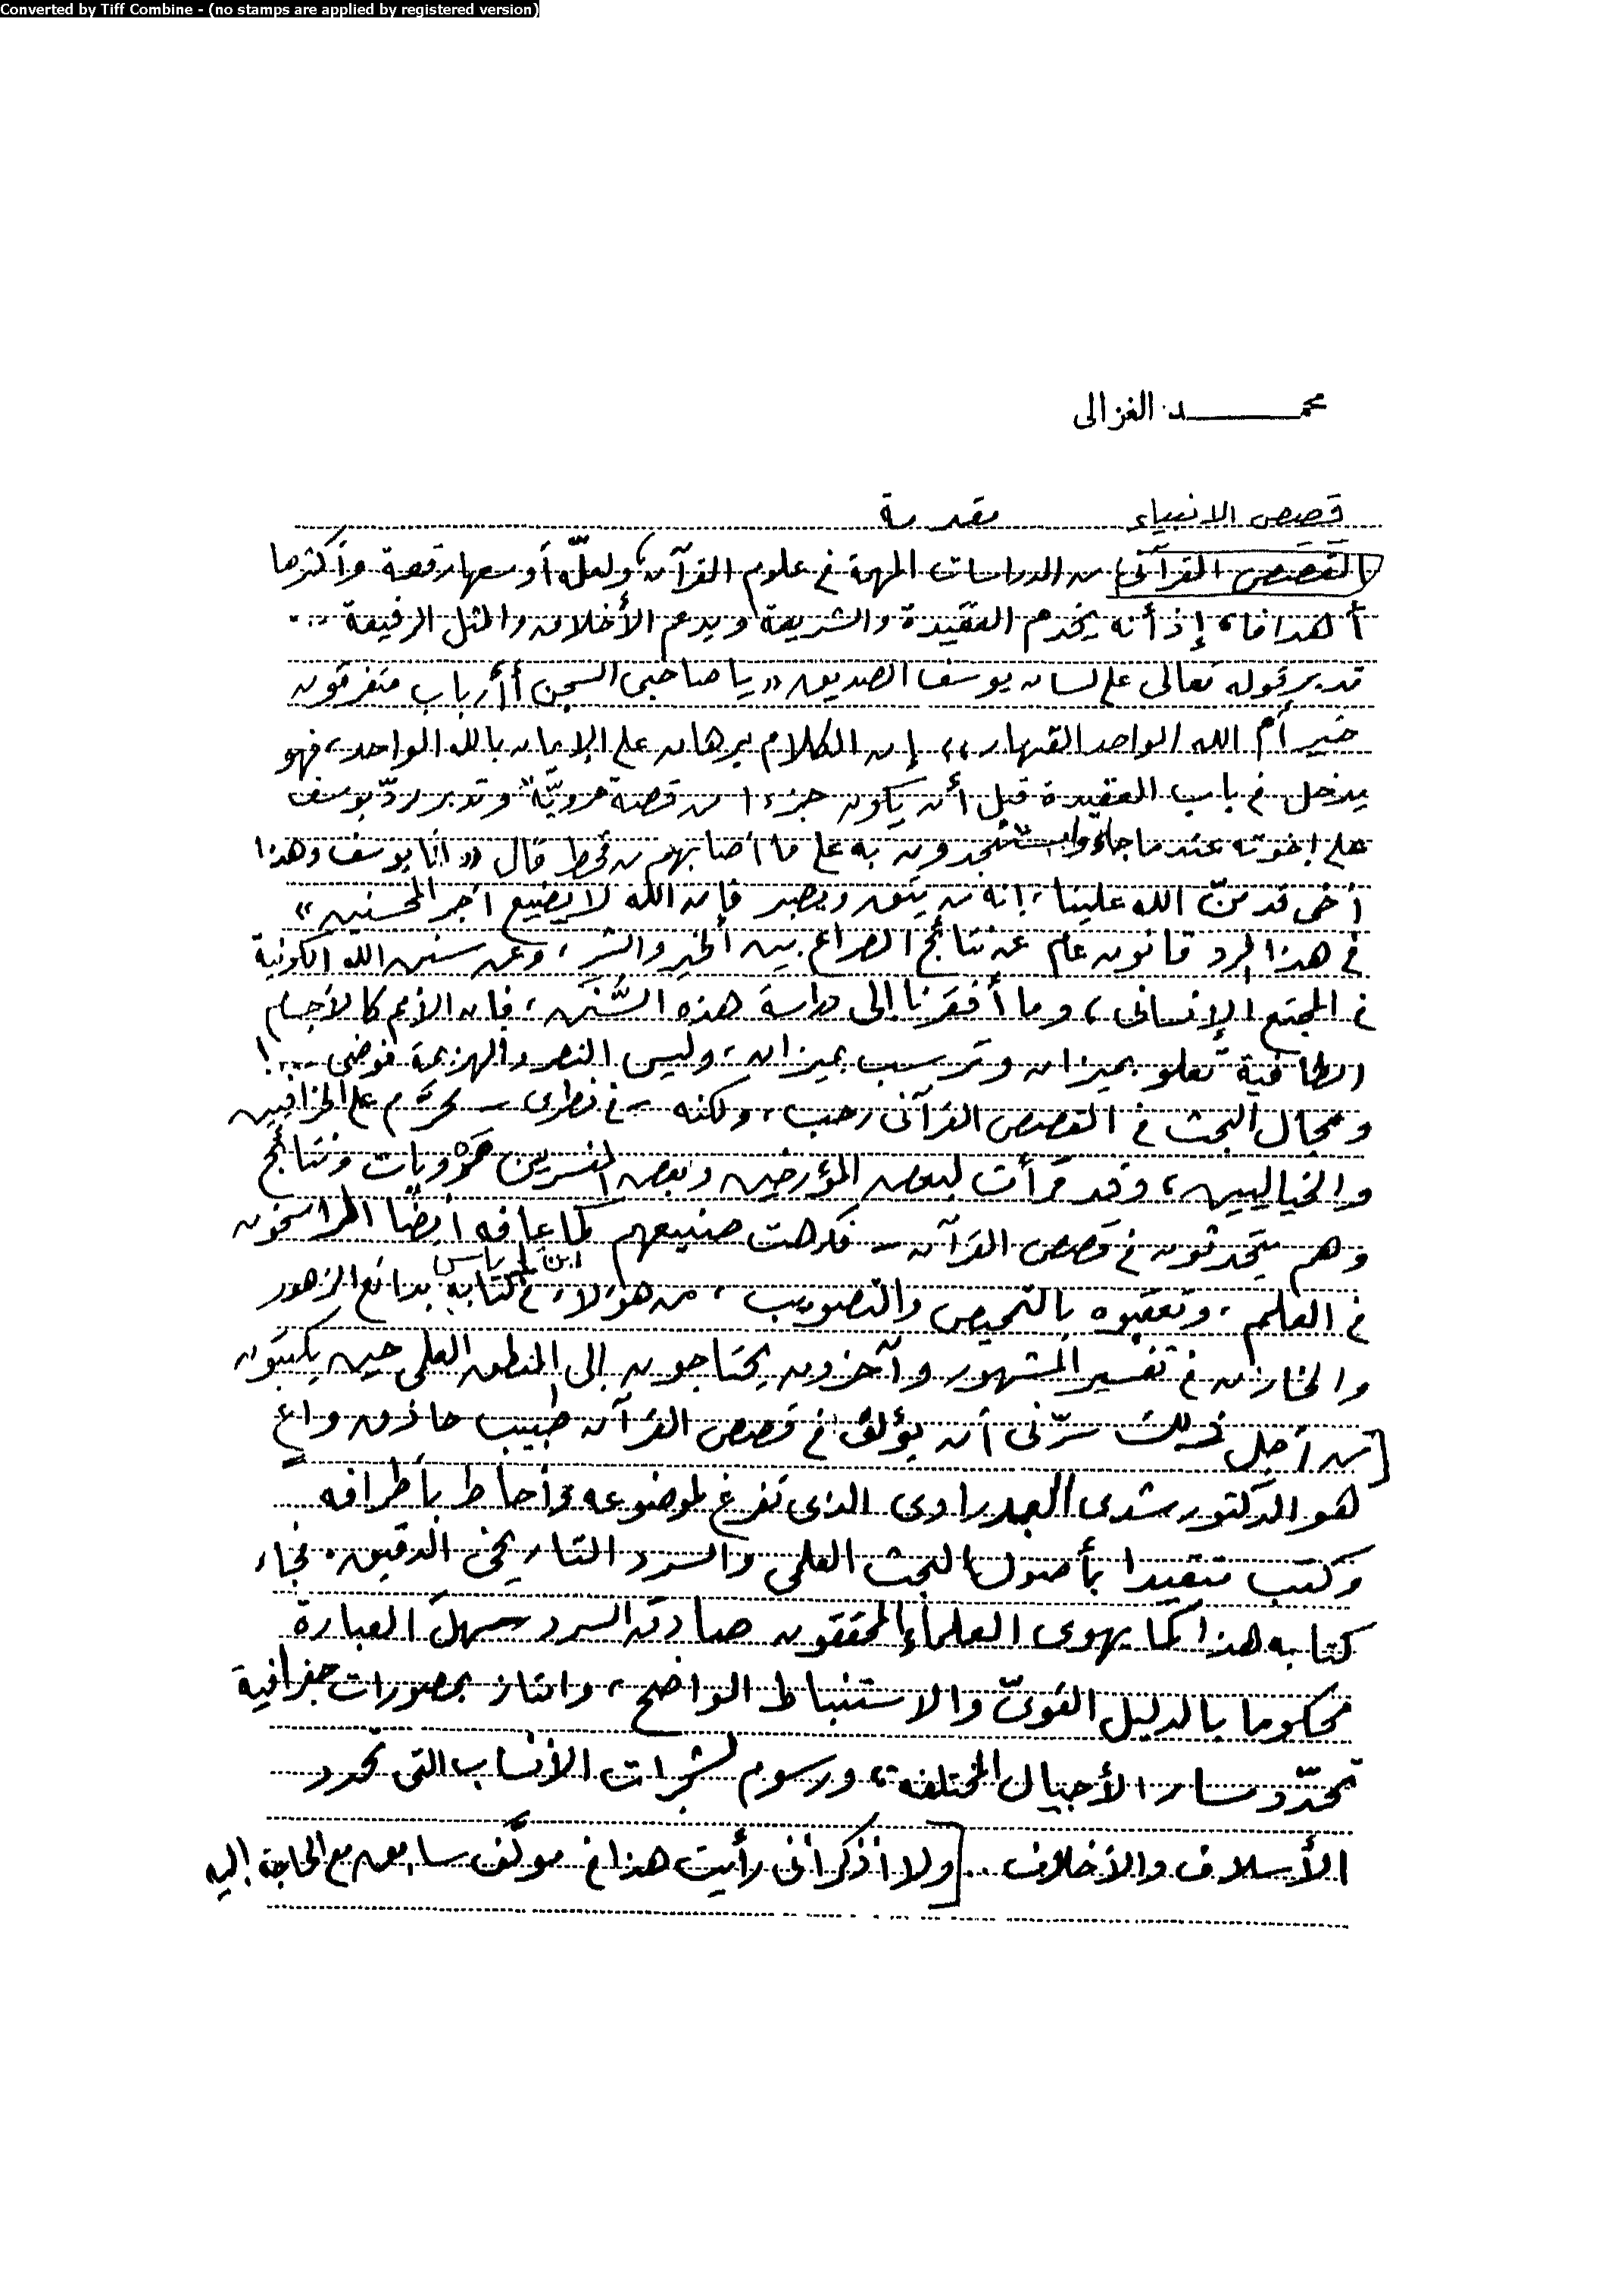 Converted by Tiff Combine - (no stamps are applied by registered version)
محمـــــد الغزالى
قصص الانبياء مقدمة
القصص القرآنى من الدراسات المهمة فى علوم القرآن، ولعلّه أوسعها رقعة وأكثرها
أهدافا، إذ أنه يخدم العقيدة والشريعة ويدعم الأخلاق والمثل الرفيعة ...
تدبر قوله تعالى على لسان يوسف الصديق «يا صاحبى السجن أأرباب متفرقون
خير أم الله الواحد القهار» إن الكلام برهان على الإيمان بالله الواحد، فهو
يدخل فى باب العقيدة قبل أن يكون جزءا من قصة مرويّة، وتدبر ردّ يوسف
على إخوته عندما جاءوا يستنجدون به على ما أصابهم من قحط قال «أنا يوسف وهذا
أخى قد منّ الله علينا، إنه من يتق ويصبر فإن الله لا يضيع أجر المحسنين»
فى هذا الرد قانون عام عن نتائج الصراع بين الخير والشر، وعن سنن الله الكونية
فى المجتع الإنسانى، وما أفقرنا إلى دراسة هذه السُّنن، فإن الأمم كالأجسام
الطافية تعلو بميزان وترسب بميزان، وليس النصر والهزيمة فوضى ...!
ومجال البحث فى القصص القرآنى رحب، ولكنه - فى نظرى - محرّم على الخرافيين
والخياليين، وقد قرأت لبعض المؤرخين وبعض المفسرين مرويات ونتائج
وهم يتحدثون فى قصص القرآن - فكرهت صنيعهم كما عافه أيضا الراسخون
فى العلم، وتعقبوه بالتمحيص والتصويب، من هؤلاء ابن إياس فى كتابه بدائع الزهور
والخازن فى تفسيره المشهور وآخرون يحتاجون إلى المنطق العلمى حين يكتبون
[من أجل ذلك سرّنى أن يؤلف فى قصص القرآن طبيب حاذق واعٍ
هو الدكتور رشدى البدراوى الذى تفرغ لموضوعه وأحاط بأطرافه
وكتب متقيدا بأصول البحث العلمى والسرد التاريخى الدقيق. فجاء
كتابه هذا كما يهوى العلماء المحققون صادق السرد سهل العبارة
محكوما بالدليل القوىّ والاستنباط الواضح، وامتاز بمصورات جغرافية
تحدّد مسار الأجيال المختلفة، ورسوم لشجرات الأنساب التى تحدد
الأسلاف والأخلاف ..] ولا أذكر أنى رأيت هذا فى مؤلَّف سابق مع الحاجة إليه